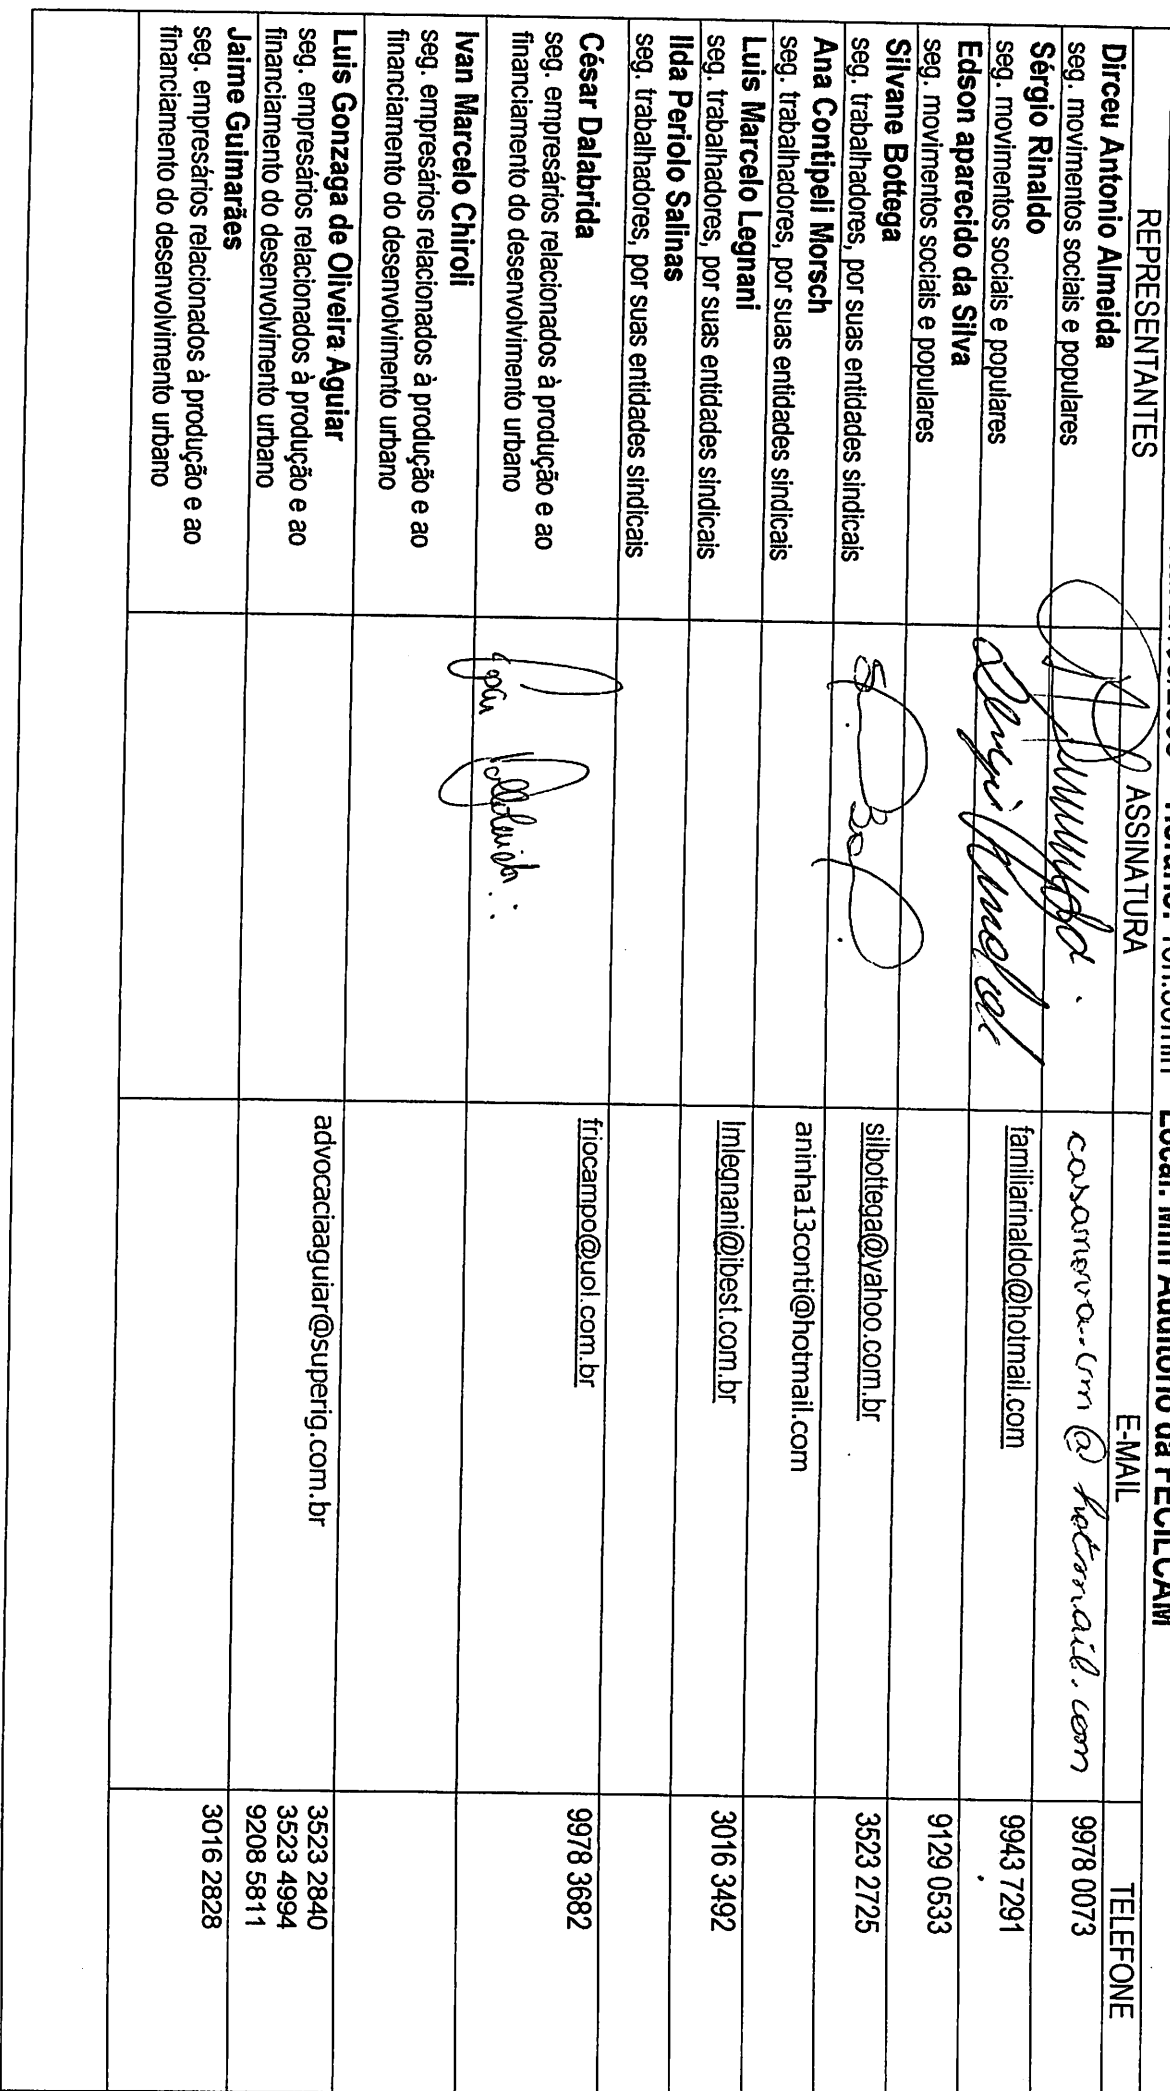 Local: Mini Auditório da FECILCAM
REPRESENTANTES ASSINATURA E-MAIL TELEFONE
Dirceu Antonio Almeida
seg. movimentos sociais e populares 9978 0073
Sérgio Rinaldo
seg. movimentos sociais e populares familiarinaldo@hotmail.com 9943 7291
Edson aparecido da Silva
seg. movimentos sociais e populares 9129 0533
Silvane Bottega
seg. trabalhadores, por suas entidades sindicais silbottega@yahoo.com.br 3523 2725
Ana Contipeli Morsch
seg. trabalhadores, por suas entidades sindicais aninha13conti@hotmail.com
Luis Marcelo Legnani
seg. trabalhadores, por suas entidades sindicais lmlegnani@ibest.com.br 3016 3492
Ilda Periolo Salinas
seg. trabalhadores, por suas entidades sindicais
César Dalabrida friocampo@uol.com.br 9978 3682
seg. empresários relacionados à produção e ao
financiamento do desenvolvimento urbano
Ivan Marcelo Chiroli
seg. empresários relacionados à produção e ao
financiamento do desenvolvimento urbano
Luis Gonzaga de Oliveira Aguiar advocaciaaguiar@superig.com.br 3523 2840
seg. empresários relacionados à produção e ao 3523 4994
financiamento do desenvolvimento urbano 9208 5811
Jaime Guimarães 3016 2828
seg. empresários relacionados à produção e ao
financiamento do desenvolvimento urbano